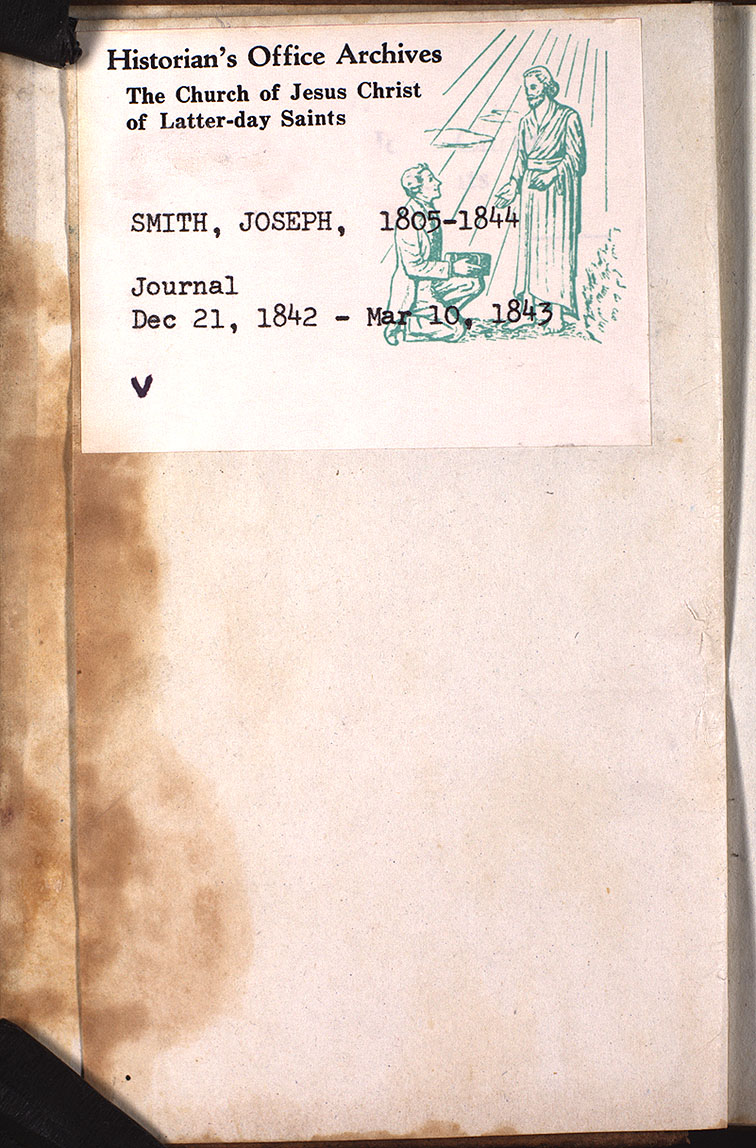 Historian's Office Archives
The Church of Jesus Christ
of Latter-day Saints
SMITH, JOSEPH, 1805-1844
Journal
Dec 21, 1842 - Mar 10, 1843
V